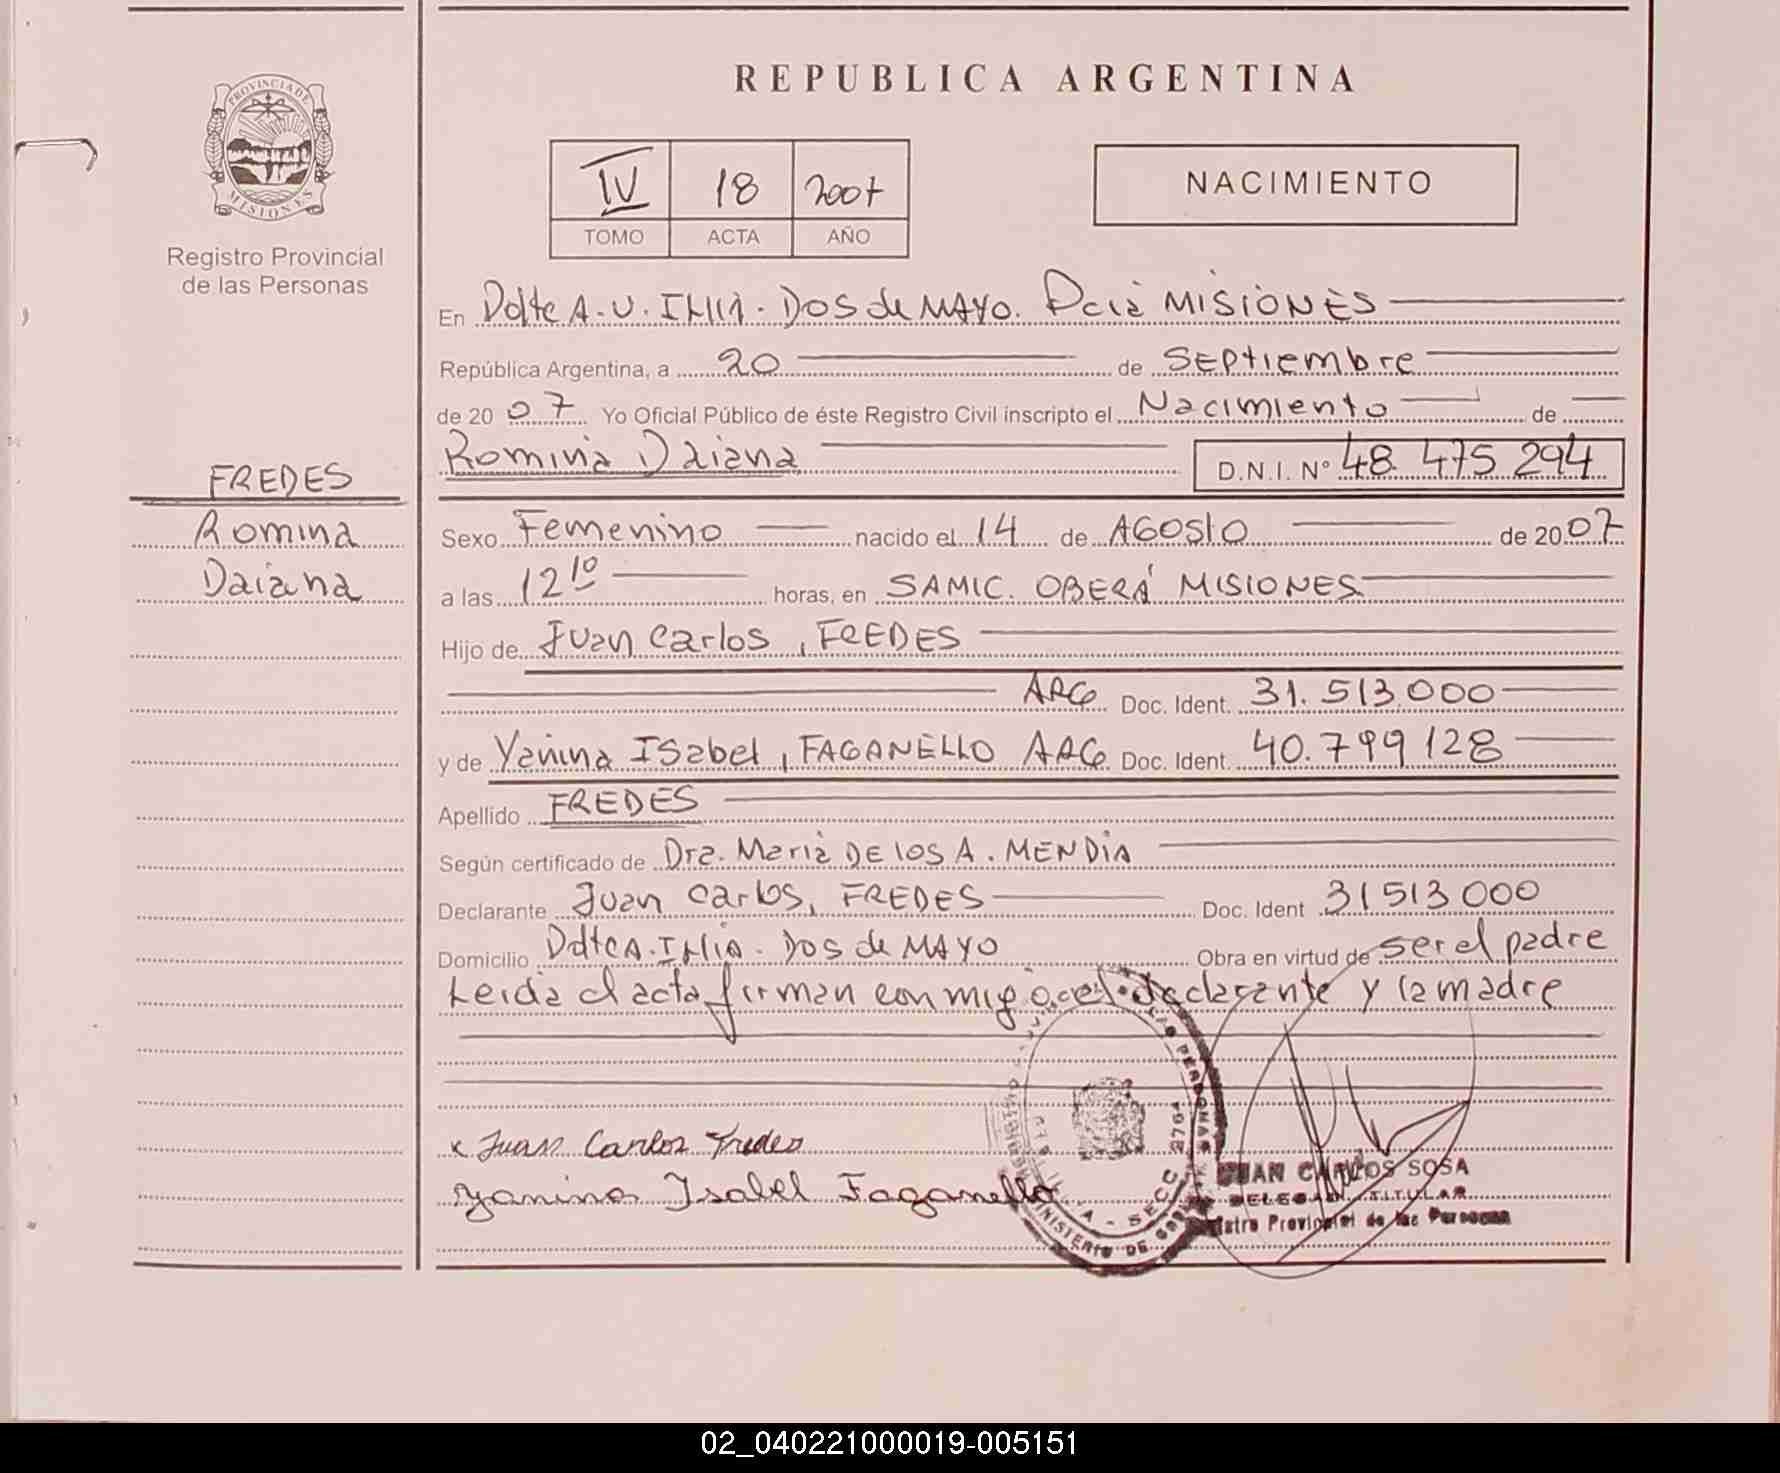 REPUBLICA ARGENTINA
PROVINCIA DE
MISIONES
Registro Provincial
de las Personas
IV 18 2007
TOMO ACTA AÑO
NACIMIENTO
En Ddte A. U. Illia. Dos de MAYO. Pcia MISIONES
República Argentina, a 20 de Septiembre
de 2007 Yo Oficial Público de éste Registro Civil inscripto el Nacimiento de
Romina Daiana D.N.I. N° 48.475.294
FREDES
Romina
Daiana
Sexo Femenino nacido el 14 de AGOSTO de 2007
a las 12 10 horas, en SAMIC. OBERÁ MISIONES
Hijo de Juan Carlos, FREDES
ARG Doc. Ident. 31.513.000
y de Yanina Isabel, FAGANELLO ARG Doc. Ident. 40.799128
Apellido FREDES
Según certificado de Dra. Maria DE LOS A. MENDIA
Declarante Juan Carlos, FREDES Doc. Ident 31513000
Domicilio Ddte A. Illia. Dos de MAYO Obra en virtud de ser el padre
Leida el acta firman conmigo el declarante y la madre
x Juan Carlos Fredes
Yanina Isabel Faganello
MINISTERIO DE
SECC 2764
JUAN CARLOS SOSA
DELEGADO TITULAR
Provincial de las Personas
02_040221000019-005151